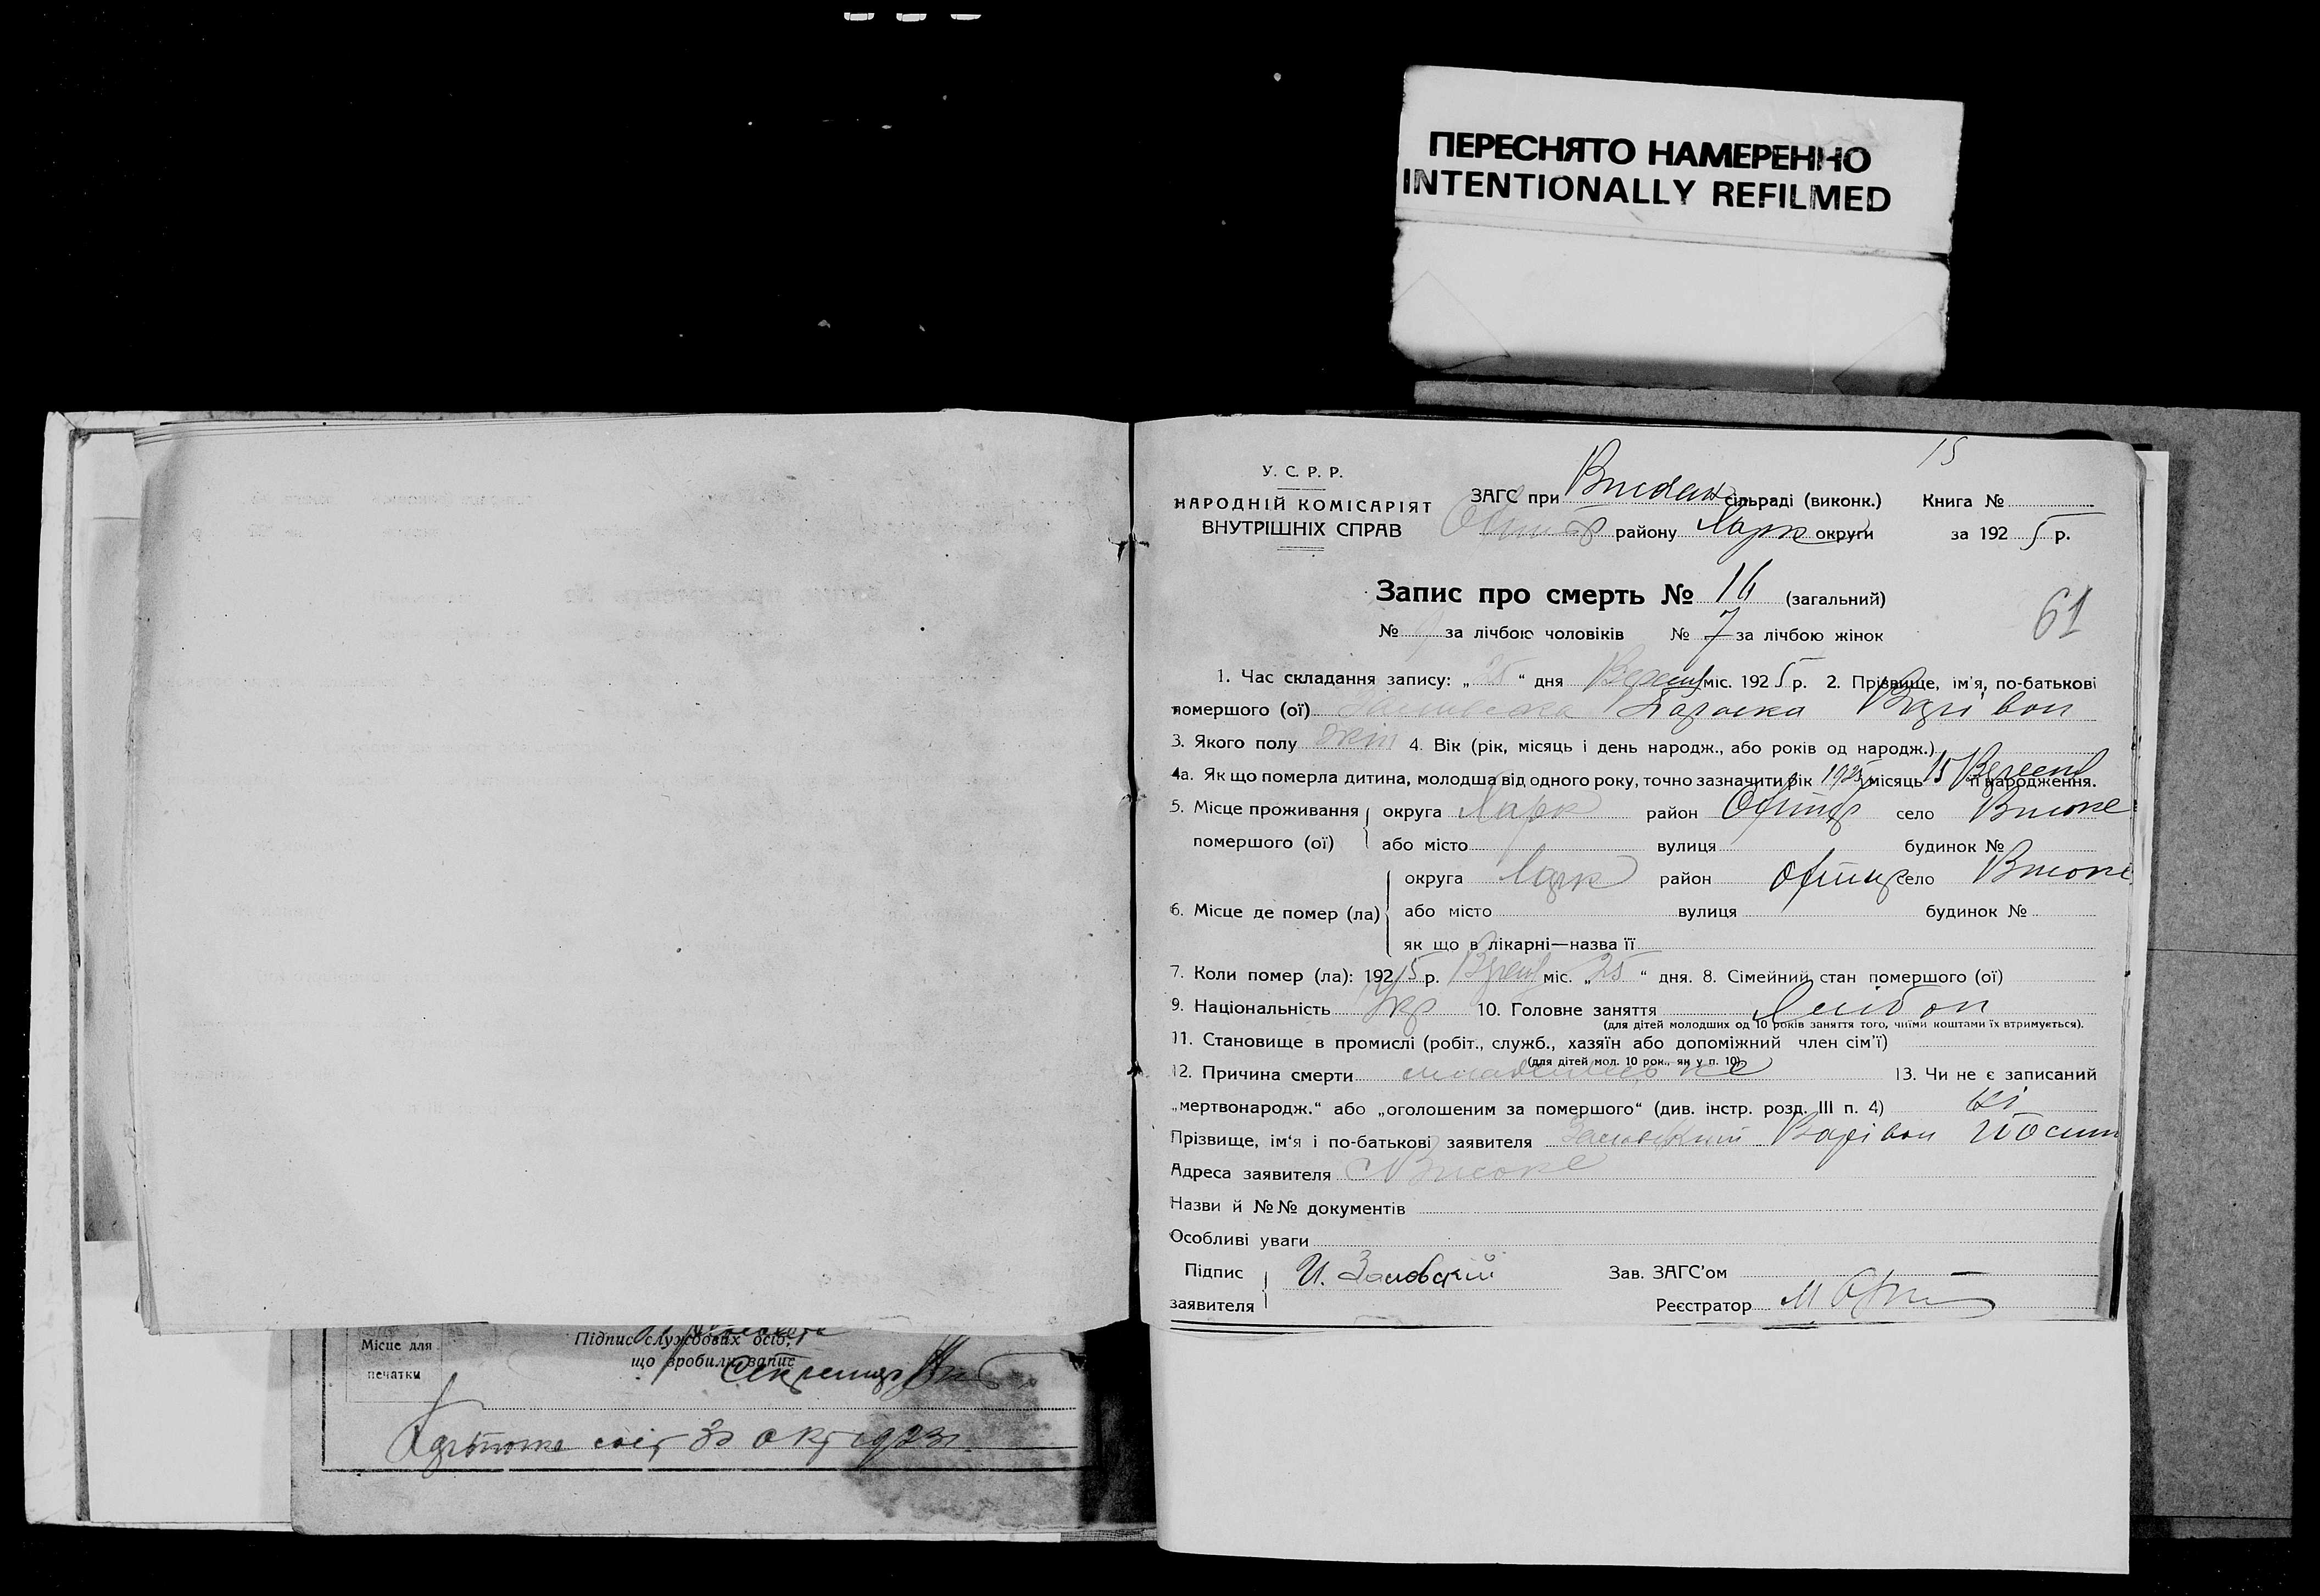 ПЕРЕСНЯТО НАМЕРЕННО
INTENTIONALLY REFILMED
15
У. С. Р. Р.
НАРОДНІЙ КОМІСАРІЯТ
ВНУТРІШНІХ СПРАВ
ЗАГС при сільраді (виконк.) Книга №
району Харк округи за 1925 р.
Запис про смерть № 16 (загальний)
61
№ за лічбою чоловіків № 7 за лічбою жінок
1. Час складання запису: „25“ дня Вересн міс. 1925 р. 2. Прізвище, ім'я, по-батькові
помершого (ої) Параска Варівон
3. Якого полу жін 4. Вік (рік, місяць і день народж., або років од народж.)
4а. Як що померла дитина, молодша від одного року, точно зазначити рік 1925 місяць 15 Вересня її народження.
5. Місце проживання округа Харк район село Високе
помершого (ої) або місто вулиця будинок №
округа Харк район село Високе
6. Місце де помер (ла) або місто вулиця будинок №
як що в лікарні—назва її
7. Коли помер (ла): 1925 р. Вересн міс. „25“ дня. 8. Сімейний стан помершого (ої)
9. Національність Укр 10. Головне заняття Хлібор
(для дітей молодших од 10 років заняття того, чиїми коштами їх втримується).
11. Становище в промислі (робіт., служб., хазяїн або допоміжний член сім'ї)
(для дітей мол. 10 рок., як у п. 10)
12. Причина смерти 13. Чи не є записаний
„мертвонародж.“ або „оголошеним за помершого“ (див. інстр. розд. III п. 4) Ні
Прізвище, ім'я і по-батькові заявителя Варівон Йосип
Адреса заявителя с Високе
Назви й №№ документів
Особливі уваги
Підпис И. Зановский Зав. ЗАГС'ом
заявителя Реєстратор
Місце для Підпис службових осіб,
печатки що зробили запис
Секретар
30 окт 1923